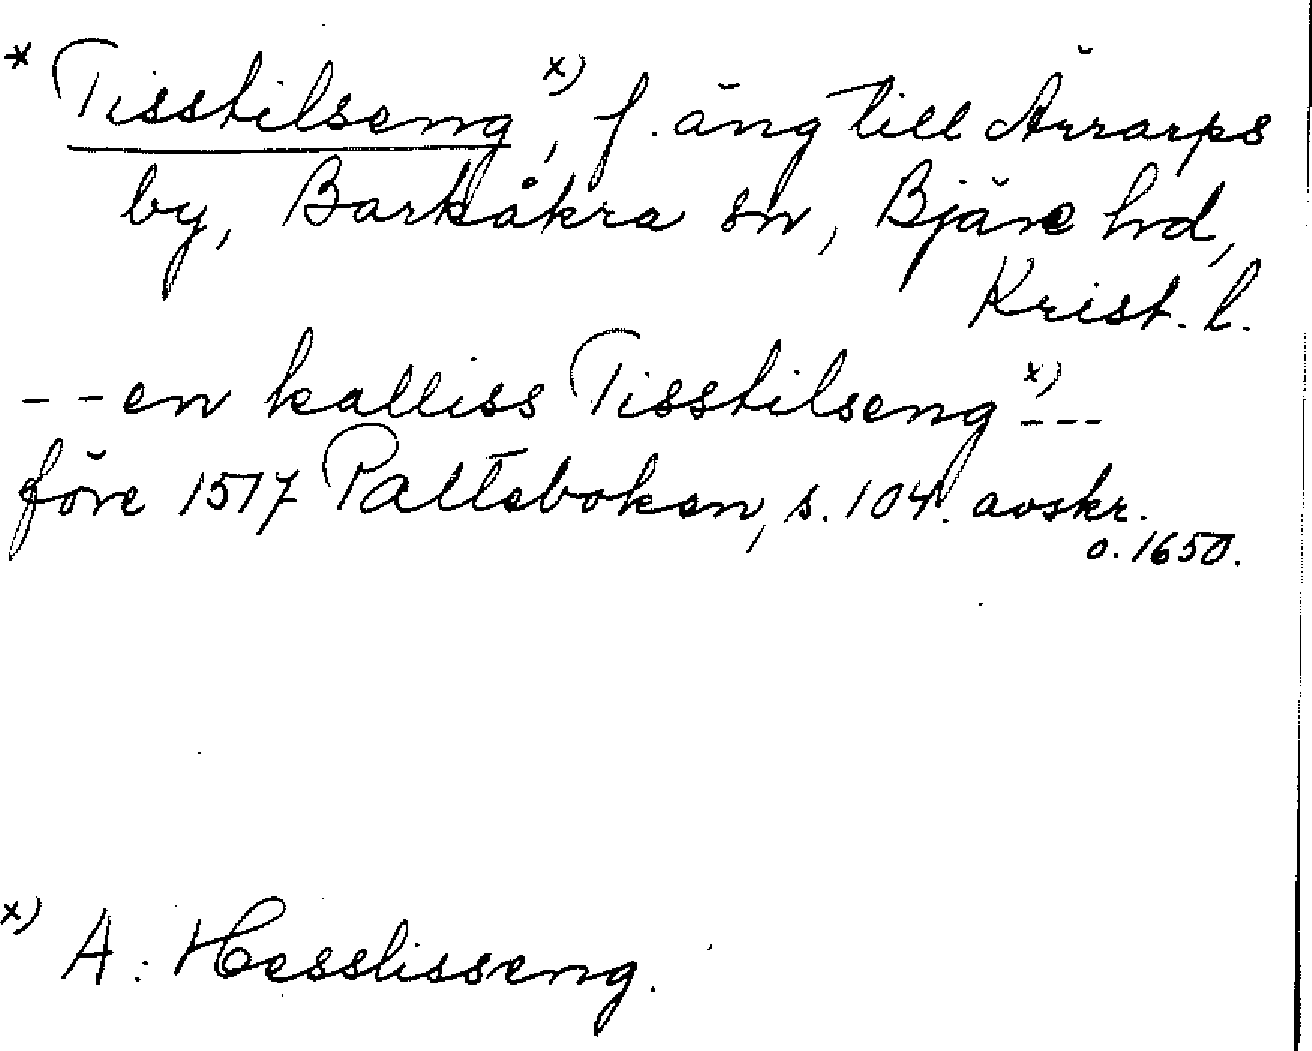 * Tisstilseng x), f. äng till Ärrarps
by, Barkåkra sn, Bjäre hd,
Krist. l.
-- en kalliss Tisstilseng x) ---
före 1517 Palteboken, s. 104. avskr.
o. 1650.
x) A: Hesslisseng.